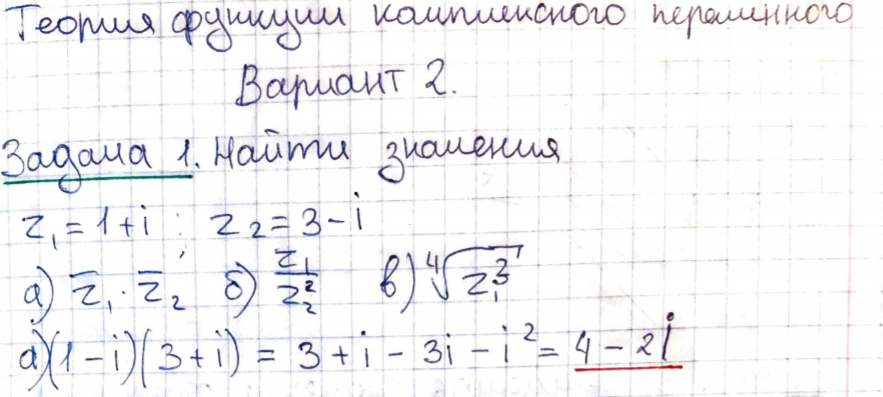 Теория функции комплексного переминного
Вариант 2.
Задача 1. Найти значения
z₁ = 1+i ; z₂ = 3-i
а) z̅₁ · z̅₂ б) z₁/z₂² в) ⁴√z₁³
а) (1-i)(3+i) = 3+i-3i-i² = 4-2i